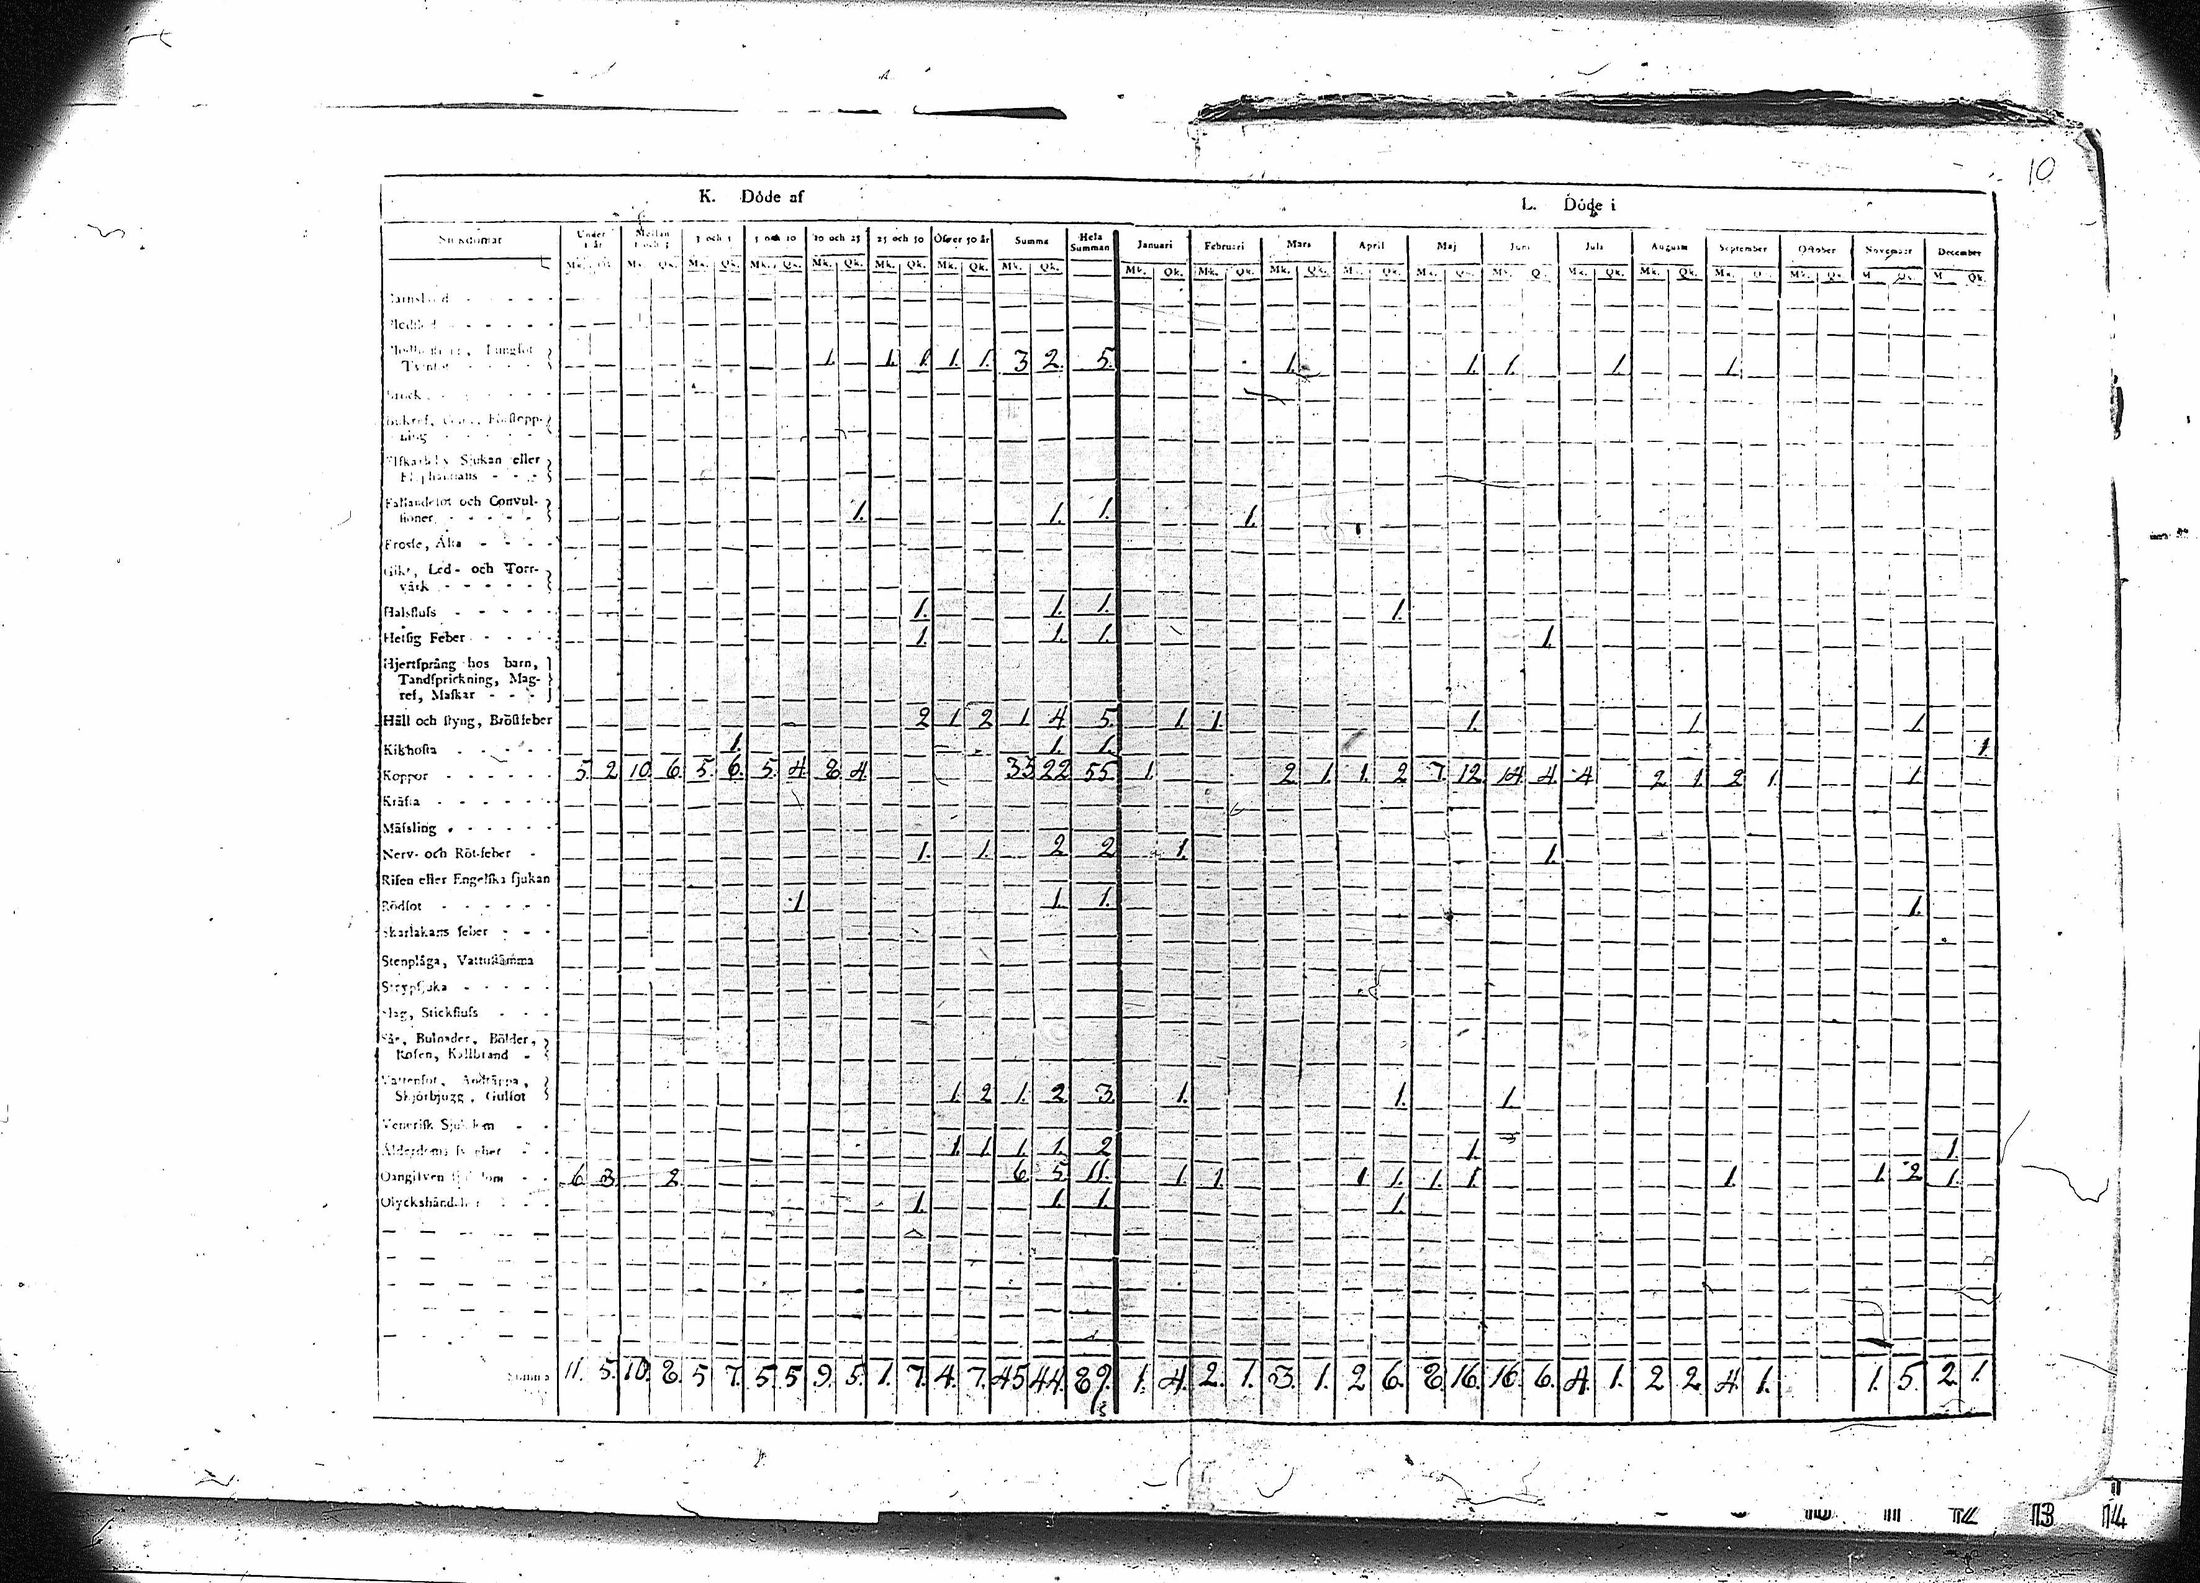 10
K. Döde af L. Döde i
Sjukdomar Under 1 år Medlan 1 och 3 3 och 5 5 och 10 10 och 25 25 och 50 Öfver 50 år Summa Hela Summan Januari Februari Mars April Maj Juni Juli Augusti September October November December
Mk. Qk. Mk. Qk. Mk. Qk. Mk. Qk. Mk. Qk. Mk. Qk. Mk. Qk. Mk. Qk. Mk. Qk. Mk. Qk. Mk. Qk. Mk. Qk. Mk. Qk. Mk. Qk. Mk. Qk. Mk. Qk. Mk. Qk. Mk. Qk. Mk. Qk. Mk. Qk.
Lungsot
1. 1. 1. 1. 1. 3 2. 5. 1. 1. 1. 1. 1.
Förstopp-
ning
Sjukan eller
Fallandesot och Convul-
sioner 1. 1. 1. 1.
Frossa, Älta
Gikt, Led- och Torr-
värk
Halsfluss 1. 1. 1. 1.
Hetsig Feber 1. 1. 1. 1.
Hjertsprång hos barn,
Tandsprickning, Mag-
ref, Maskar
Håll och styng, Bröstfeber 2 1 2 1 4 5. 1. 1. 1. 1. 1.
Kikhosta 1. 1. 1. 1.
Koppor 5. 2. 10. 6. 5. 6. 5. 4. 8. 4. 33 22 55 1. 2 1. 1. 2 7. 12. 14 4. 4 2 1. 2 1. 1.
Kräfta
Mässling
Nerv- och Röt-feber 1. 1. 2 2 1. 1.
Risen eller Engelska sjukan
Rödsot 1 1. 1. 1.
Skarlakans feber
Stenplåga, Vattustämma
Strypsjuka
Slag, Stickfluss
Sår, Bulnader, Bölder,
Rosen, Kallbrand
Vattensot, Andtäppa,
Skjörbjugg, Gulsot 1. 2 1. 2 3. 1. 1. 1.
Venerisk Sjukdom
Ålderdoms 1. 1. 1. 1. 2 1. 1.
Oangifven sjukdom 6 3 2. 6. 5. 11. 1. 1. 1. 1. 1. 1. 1. 1. 2 1.
Olyckshändelser 1. 1. 1. 1.
Summa 11. 5. 10. 8. 5 7. 5. 5 9. 5. 1. 7. 4. 7. 45 44. 89. 1. 4. 2. 1. 3. 1. 2 6. 8 16. 16. 6. 4. 1. 2 2 4. 1. 1. 5. 2 1.
13 14